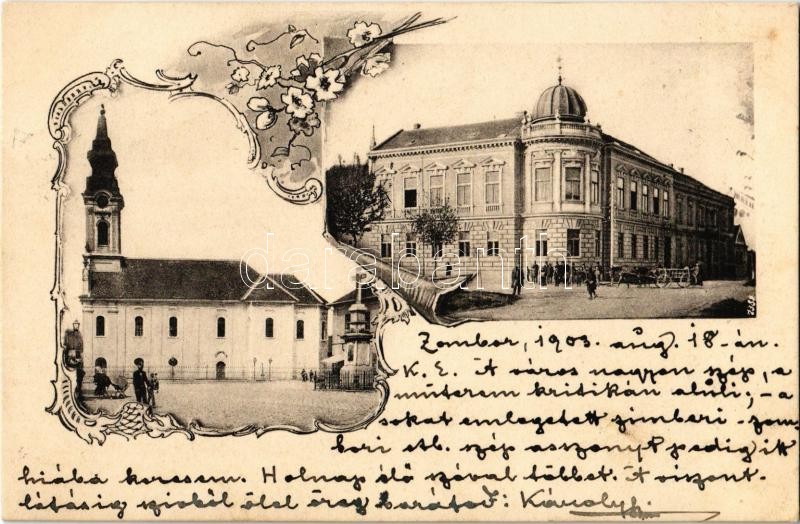 darabanth.com
Zombor, 1903. aug. 18-án.
K. E. A város nagyon szép, a
műterem kritikán alúli; - a
sokat emlegetett zimberi-zom-
bori stb. szép asszonyt pedig itt
hiába keresem. Holnap élő szóval többet. A viszont-
látásig szívből ölel öreg barátod: Károly